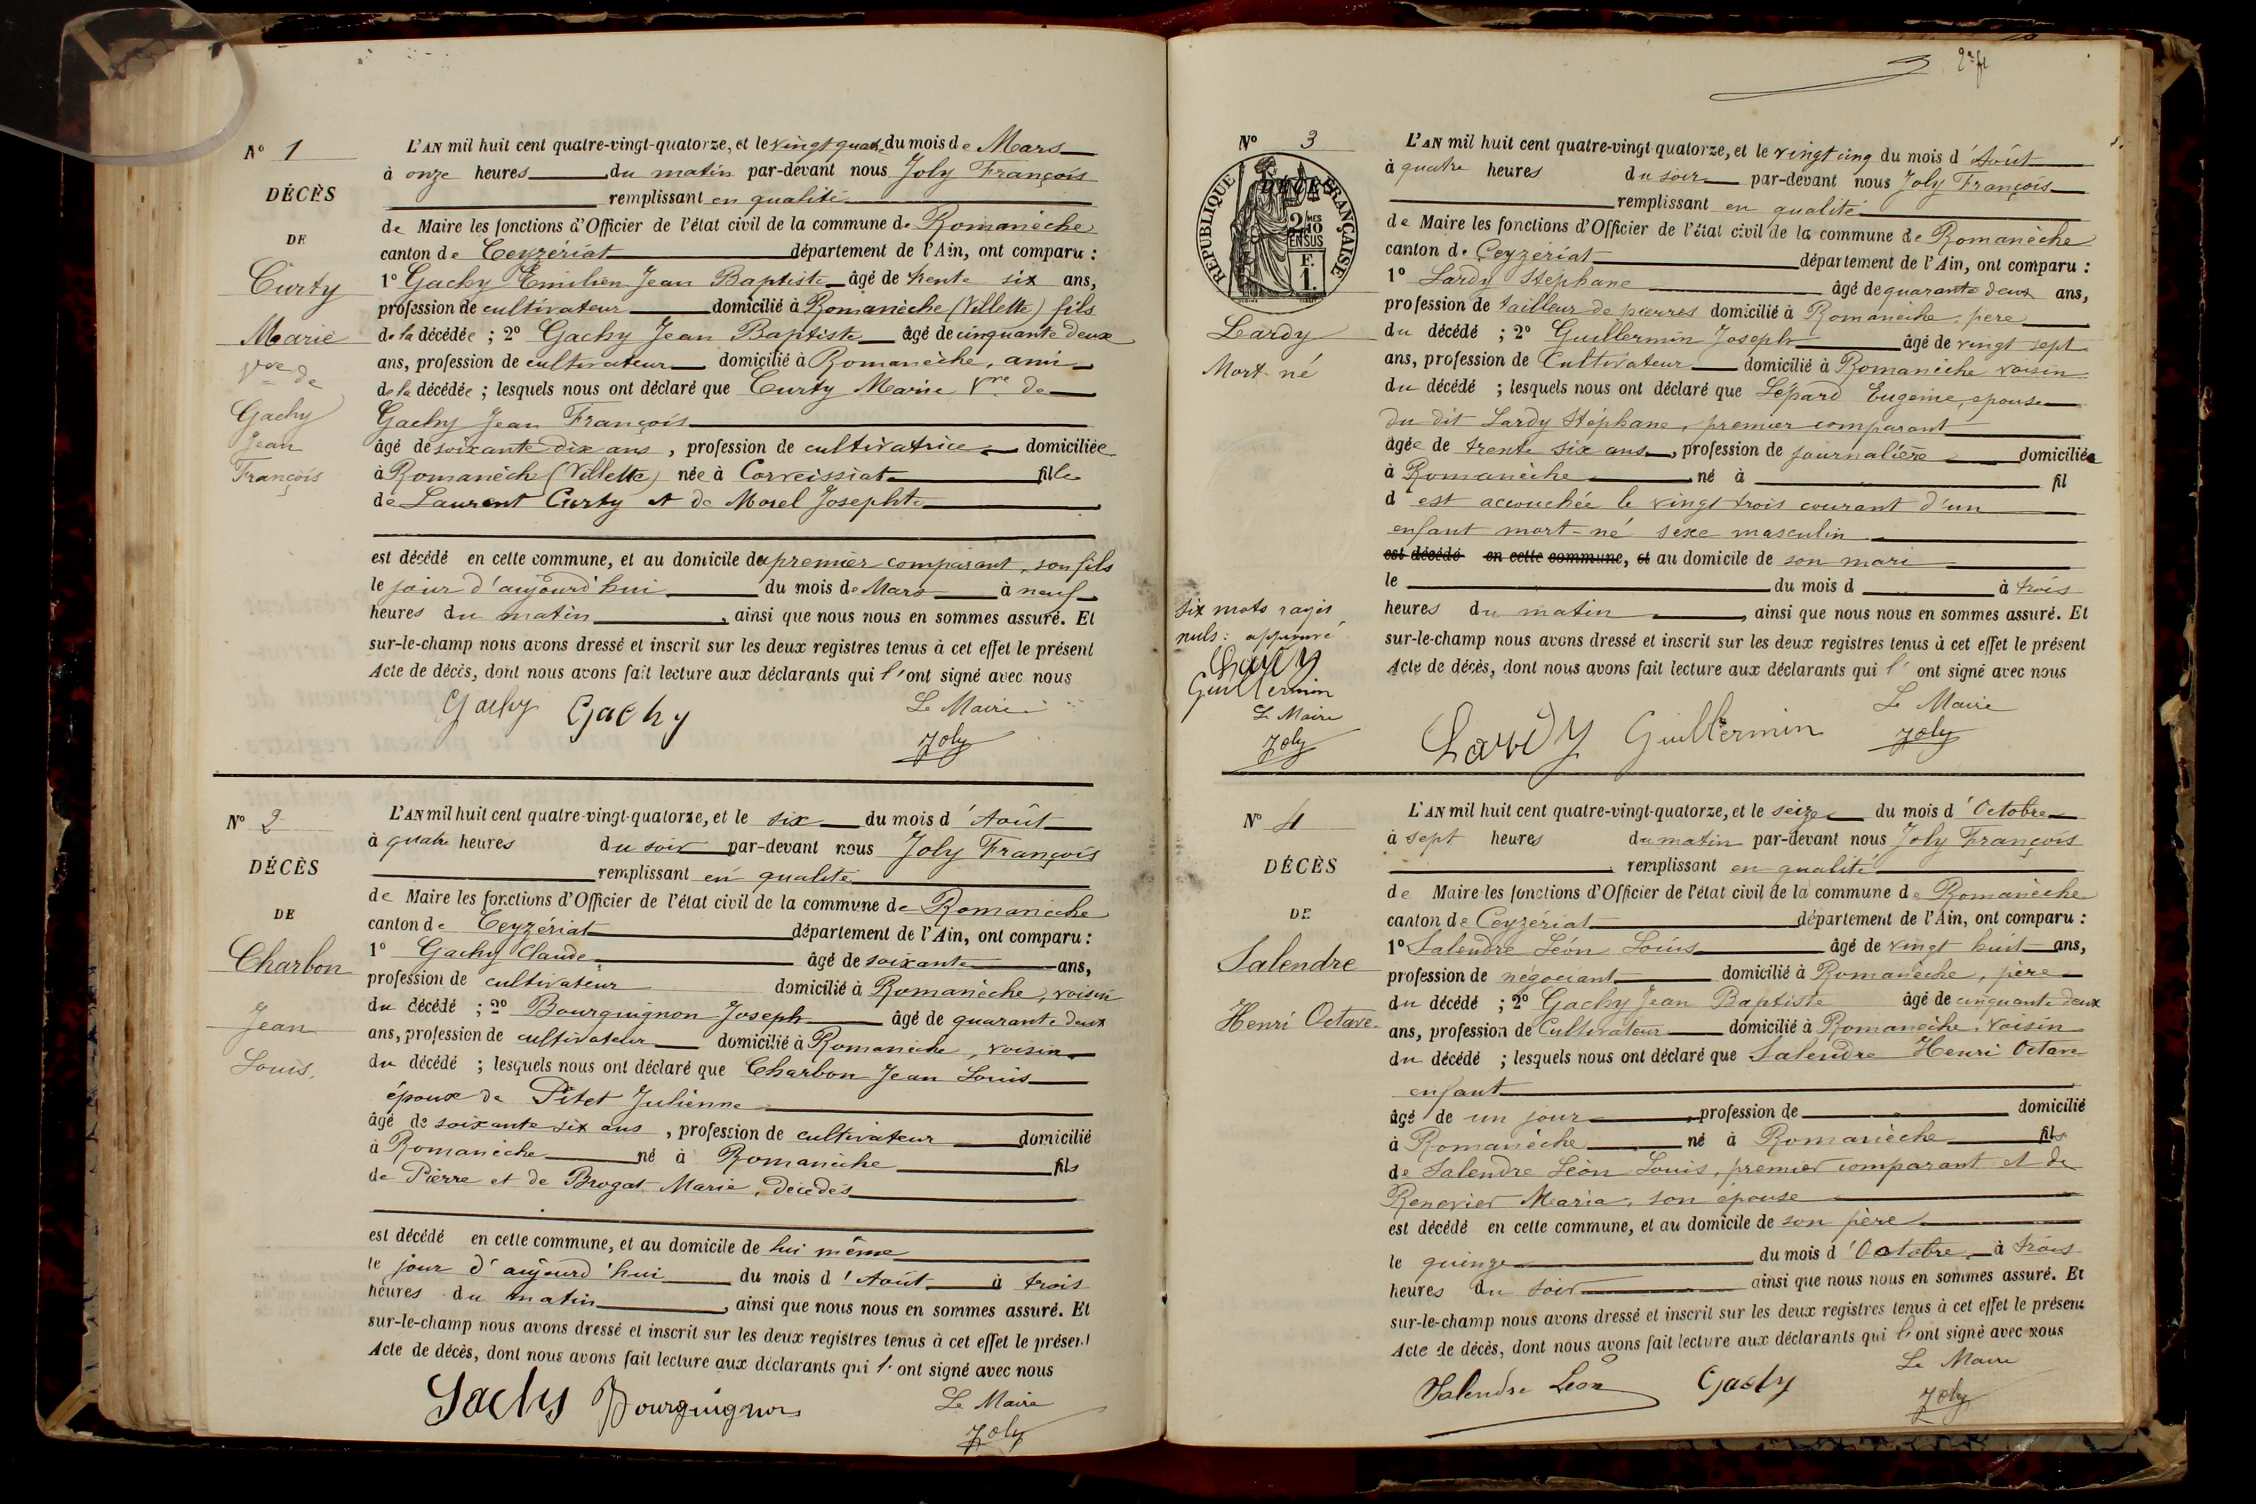 N° 1
DÉCÈS
DE
Curty
Marie
Vve de
Gachy
Jean
François
L'AN mil huit cent quatre-vingt-quatorze, et le vingt quat. du mois de Mars
à onze heures du matin par-devant nous Joly François
remplissant en qualité
de Maire les fonctions d'Officier de l'état civil de la commune de Romanèche
canton de Ceyzériat département de l'Ain, ont comparu :
1° Gachy Emilien Jean Baptiste âgé de trente six ans,
profession de cultivateur domicilié à Romanèche (Villette) fils
de la décédée ; 2° Gachy Jean Baptiste âgé de cinquante deux
ans, profession de cultivateur domicilié à Romanèche, ami
de la décédée ; lesquels nous ont déclaré que Curty Marie Vve de
Gachy Jean François
âgé de soixante dix ans, profession de cultivatrice domiciliée
à Romanèche (Villette) née à Corveissiat fille
de Laurent Curty et de Morel Josephte
est décédé en cette commune, et au domicile du premier comparant, son fils
le jour d'aujourd'hui du mois de Mars à neuf
heures du matin, ainsi que nous nous en sommes assuré. Et
sur-le-champ nous avons dressé et inscrit sur les deux registres tenus à cet effet le présent
Acte de décès, dont nous avons fait lecture aux déclarants qui l'ont signé avec nous
Gachy Gachy Le Maire
Joly
N° 2
DÉCÈS
DE
Charbon
Jean
Louis.
L'AN mil huit cent quatre-vingt-quatorze, et le six du mois d'Août
à quatre heures du soir par-devant nous Joly François
remplissant en qualité
de Maire les fonctions d'Officier de l'état civil de la commune de Romanèche
canton de Ceyzériat département de l'Ain, ont comparu :
1° Gachy Claude âgé de soixante ans,
profession de cultivateur domicilié à Romanèche, voisin
du décédé ; 2° Bourguignon Joseph âgé de quarante deux
ans, profession de cultivateur domicilié à Romanèche, voisin
du décédé ; lesquels nous ont déclaré que Charbon Jean Louis
époux de Pitet Julienne
âgé de soixante six ans, profession de cultivateur domicilié
à Romanèche né à Romanèche fils
de Pierre et de Brogat Marie, décédés
est décédé en cette commune, et au domicile de lui même
le jour d'aujourd'hui du mois d'Août à trois
heures du matin, ainsi que nous nous en sommes assuré. Et
sur-le-champ nous avons dressé et inscrit sur les deux registres tenus à cet effet le présent
Acte de décès, dont nous avons fait lecture aux déclarants qui l'ont signé avec nous
Gachy Bourguignon Le Maire
Joly
N° 3
RÉPUBLIQUE FRANÇAISE
DÉCÈS
2/10 MES
EN SUS
F.
1.
Lardy
Mort né
L'AN mil huit cent quatre-vingt quatorze, et le vingt cinq du mois d'Août
à quatre heures du soir par-devant nous Joly François
remplissant en qualité
de Maire les fonctions d'Officier de l'état civil de la commune de Romanèche
canton de Ceyzériat département de l'Ain, ont comparu :
1° Lardy Stéphane âgé de quarante deux ans,
profession de tailleur de pierres domicilié à Romanèche, père
du décédé ; 2° Guillermin Joseph âgé de vingt sept
ans, profession de Cultivateur domicilié à Romanèche voisin
du décédé ; lesquels nous ont déclaré que Lépard Eugénie, épouse
du dit Lardy Stéphane, premier comparant
âgée de trente six ans, profession de journalière domiciliée
à Romanèche né à fil
d est accouchée le vingt trois courant d'un
enfant mort-né sexe masculin
est décédé en cette commune, et au domicile de son mari
le du mois d à trois
heures du matin, ainsi que nous nous en sommes assuré. Et
sur-le-champ nous avons dressé et inscrit sur les deux registres tenus à cet effet le présent
Acte de décès, dont nous avons fait lecture aux déclarants qui l'ont signé avec nous
six mots rayés
nuls : approuvé
Lardy
Guillermin
Le Maire
Joly
Lardy Guillermin Le Maire
Joly
N° 4
DÉCÈS
DE
Salendre
Henri Octave
L'AN mil huit cent quatre-vingt-quatorze, et le seize du mois d'Octobre
à sept heures du matin par-devant nous Joly François
remplissant en qualité
de Maire les fonctions d'Officier de l'état civil de la commune de Romanèche
canton de Ceyzériat département de l'Ain, ont comparu :
1° Salendre Léon Louis âgé de vingt huit ans,
profession de négociant domicilié à Romanèche, père
du décédé ; 2° Gachy Jean Baptiste âgé de cinquante deux
ans, profession de Cultivateur domicilié à Romanèche, voisin
du décédé ; lesquels nous ont déclaré que Salendre Henri Octave
enfant
âgé de un jour, profession de domicilié
à Romanèche né à Romanèche fils
de Salendre Léon Louis, premier comparant et de
Renevier Maria, son épouse
est décédé en cette commune, et au domicile de son père
le quinze du mois d'Octobre à trois
heures du soir ainsi que nous nous en sommes assuré. Et
sur-le-champ nous avons dressé et inscrit sur les deux registres tenus à cet effet le présent
Acte de décès, dont nous avons fait lecture aux déclarants qui l'ont signé avec nous
Salendre Léon Gachy Le Maire
Joly